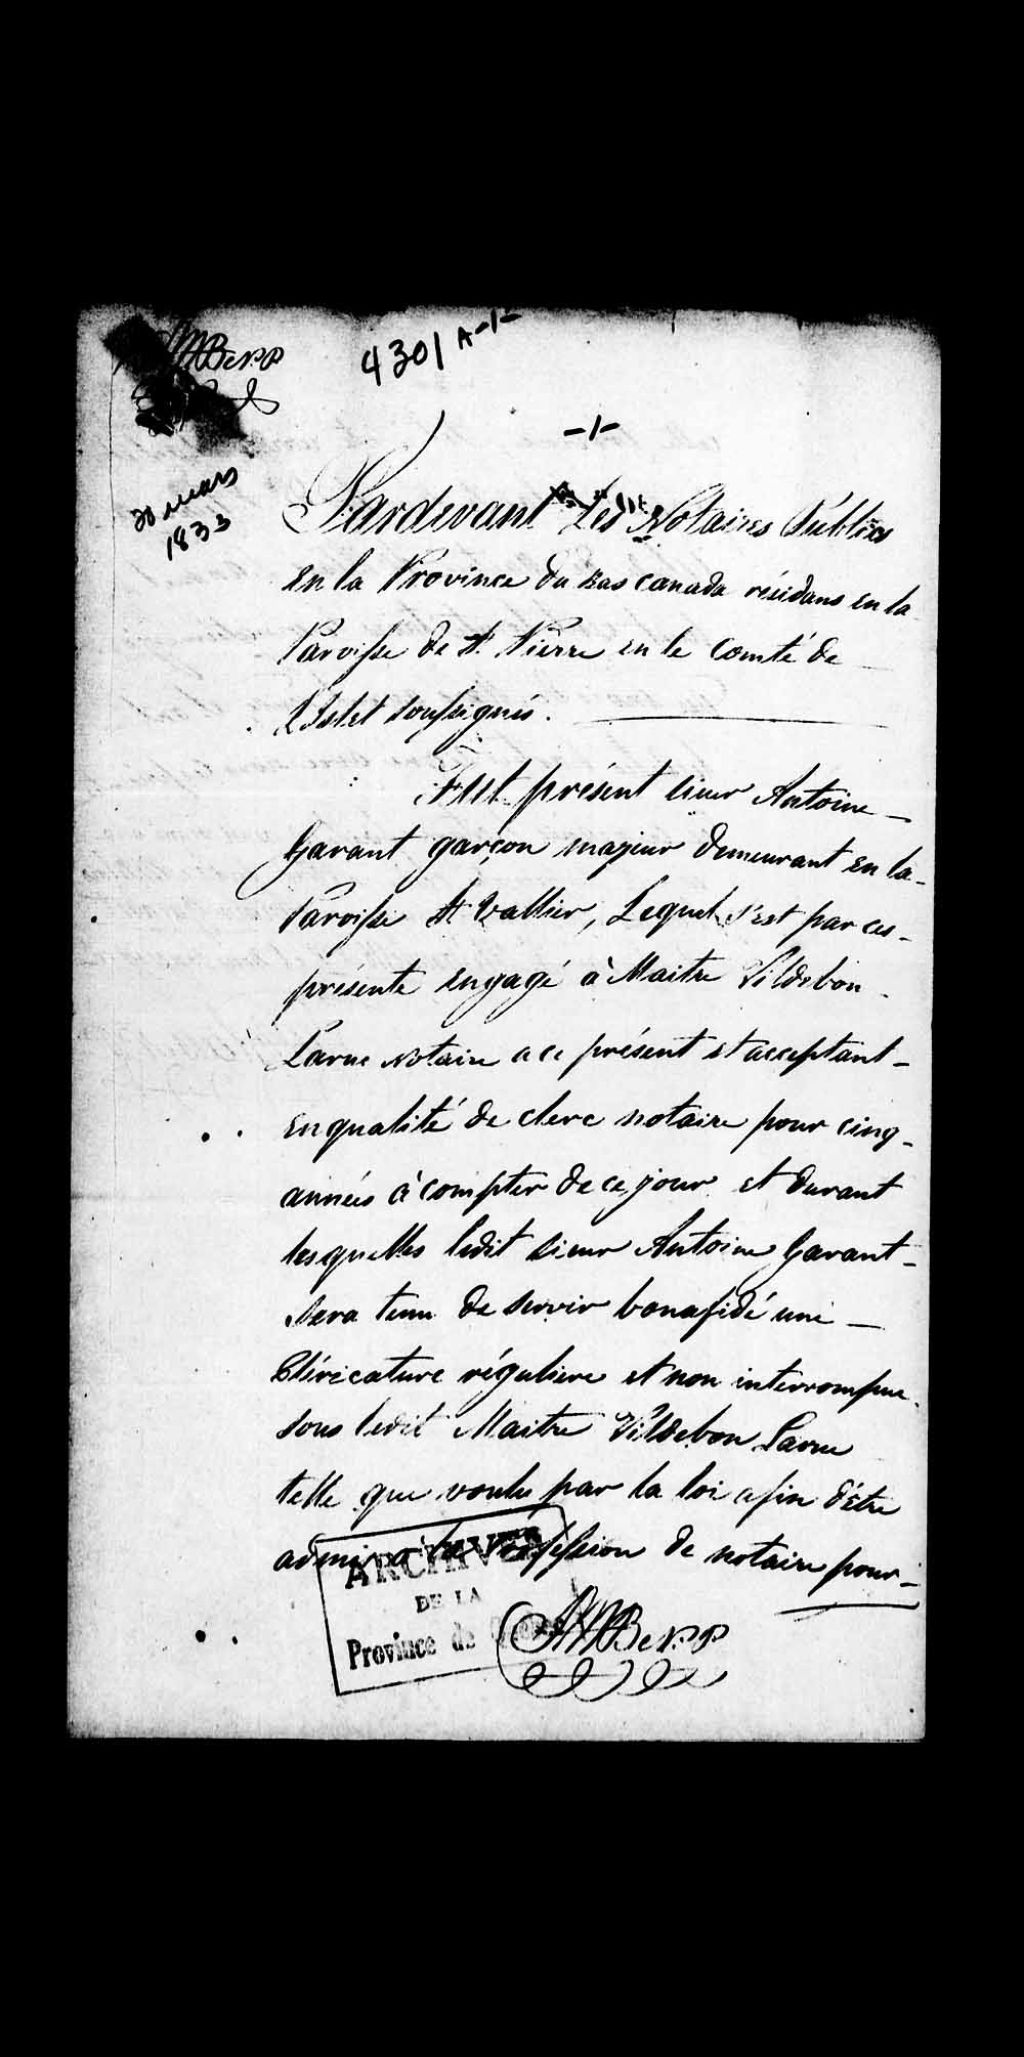 AMBe N.P.
4301 A-1-
-1-
20 mars
1833
Pardevant Les Notaires Publics
En la Province du Bas Canada résidans en la
Paroisse de St. Pierre en le Comté de
L'Islet soussignés.
Fut présent sieur Antoine
Garant garçon majeur demeurant en la
Paroisse St Vallier, Lequel s'est par ces
présente engagé à Maitre Vildebon
Larue Notaire a ce présent et acceptant
en qualité de clerc notaire pour cinq
années à compter de ce jour et durant
lesquelles ledit sieur Antoine Garant
sera tenu de servir bonafidé une
Cléricature réguliere et non interrompue
sous ledit Maitre Vildebon Larue
telle que voulu par la loi afin d'être
admis a la Profession de notaire pour
ARCHIVES
DE LA
Province de Québec
AMBe N.P.